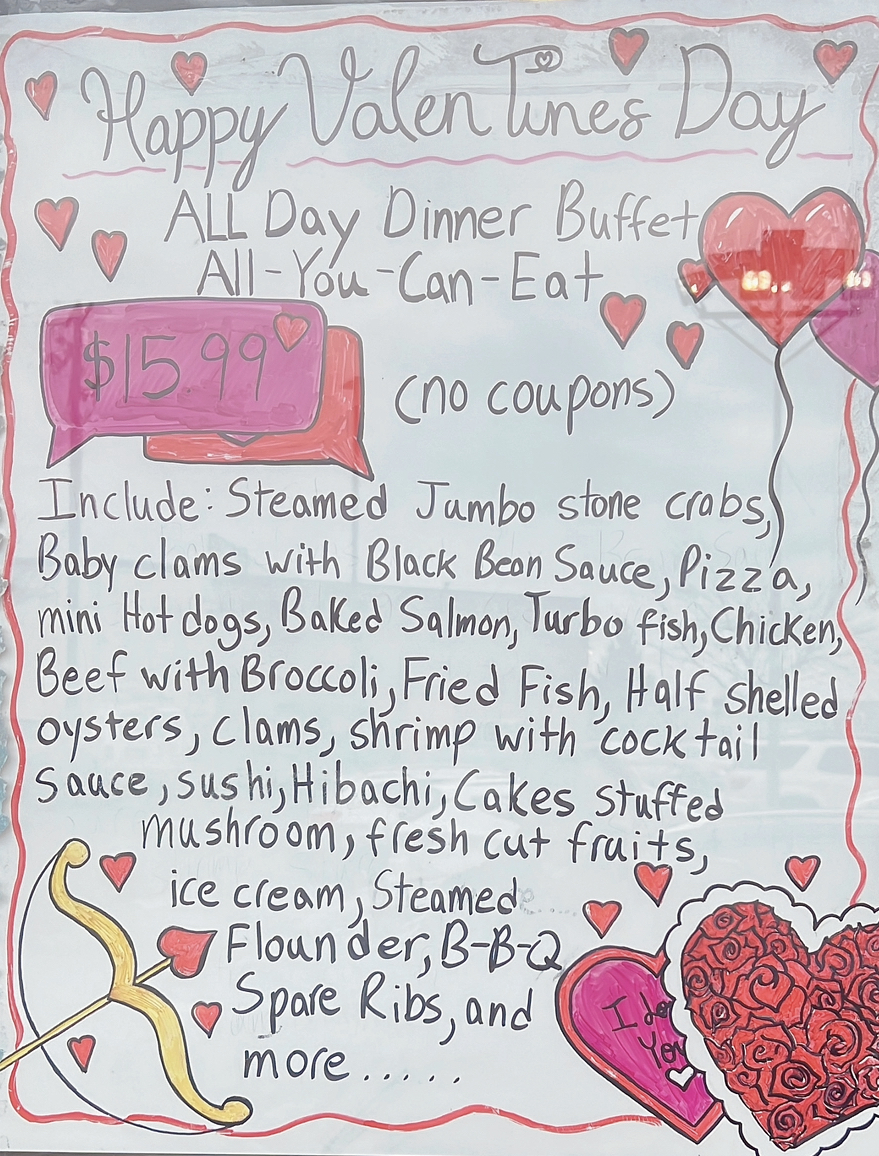 Happy ValenTines Day
ALL Day Dinner Buffet
All-You-Can-Eat
$15.99
(no coupons)
Include: Steamed Jumbo stone crabs,
Baby clams with Black Bean Sauce, Pizza,
mini Hot dogs, Baked Salmon, Turbo fish, Chicken,
Beef with Broccoli, Fried Fish, Half shelled
oysters, clams, shrimp with cocktail
sauce, sushi, Hibachi, Cakes stuffed
mushroom, fresh cut fruits,
ice cream, Steamed
Flounder, B-B-Q
Spare Ribs, and
more.....
I
You